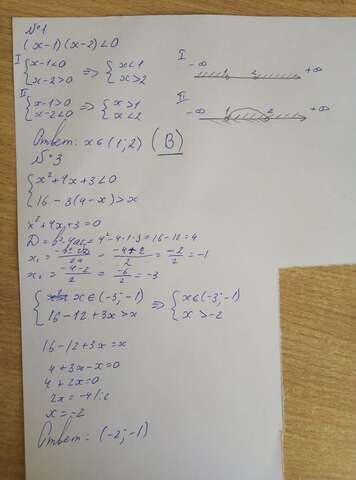 №1
(x-1)(x-2)<0
I {x-1<0 x-2>0 ⇒ {x<1 x>2 I -∞ 1 2 +∞
II {x-1>0 x-2<0 ⇒ {x>1 x<2 II -∞ 1 2 +∞
Ответ: x∈(1;2) (В)
№3
{x²+4x+3<0
16-3(4-x)>x
x²+4x+3=0
D=b²-4ac=4²-4·1·3=16-12=4
x₁= = -4+2/2 = -2/2 = -1
x₂= -4-2/2 = -6/2 = -3
{x∈(-3;-1) ⇒ {x∈(-3;-1)
16-12+3x>x x>-2
16-12+3x=x
4+3x-x=0
4+2x=0
2x=-4 |:2
x=-2
Ответ: (-2;-1)